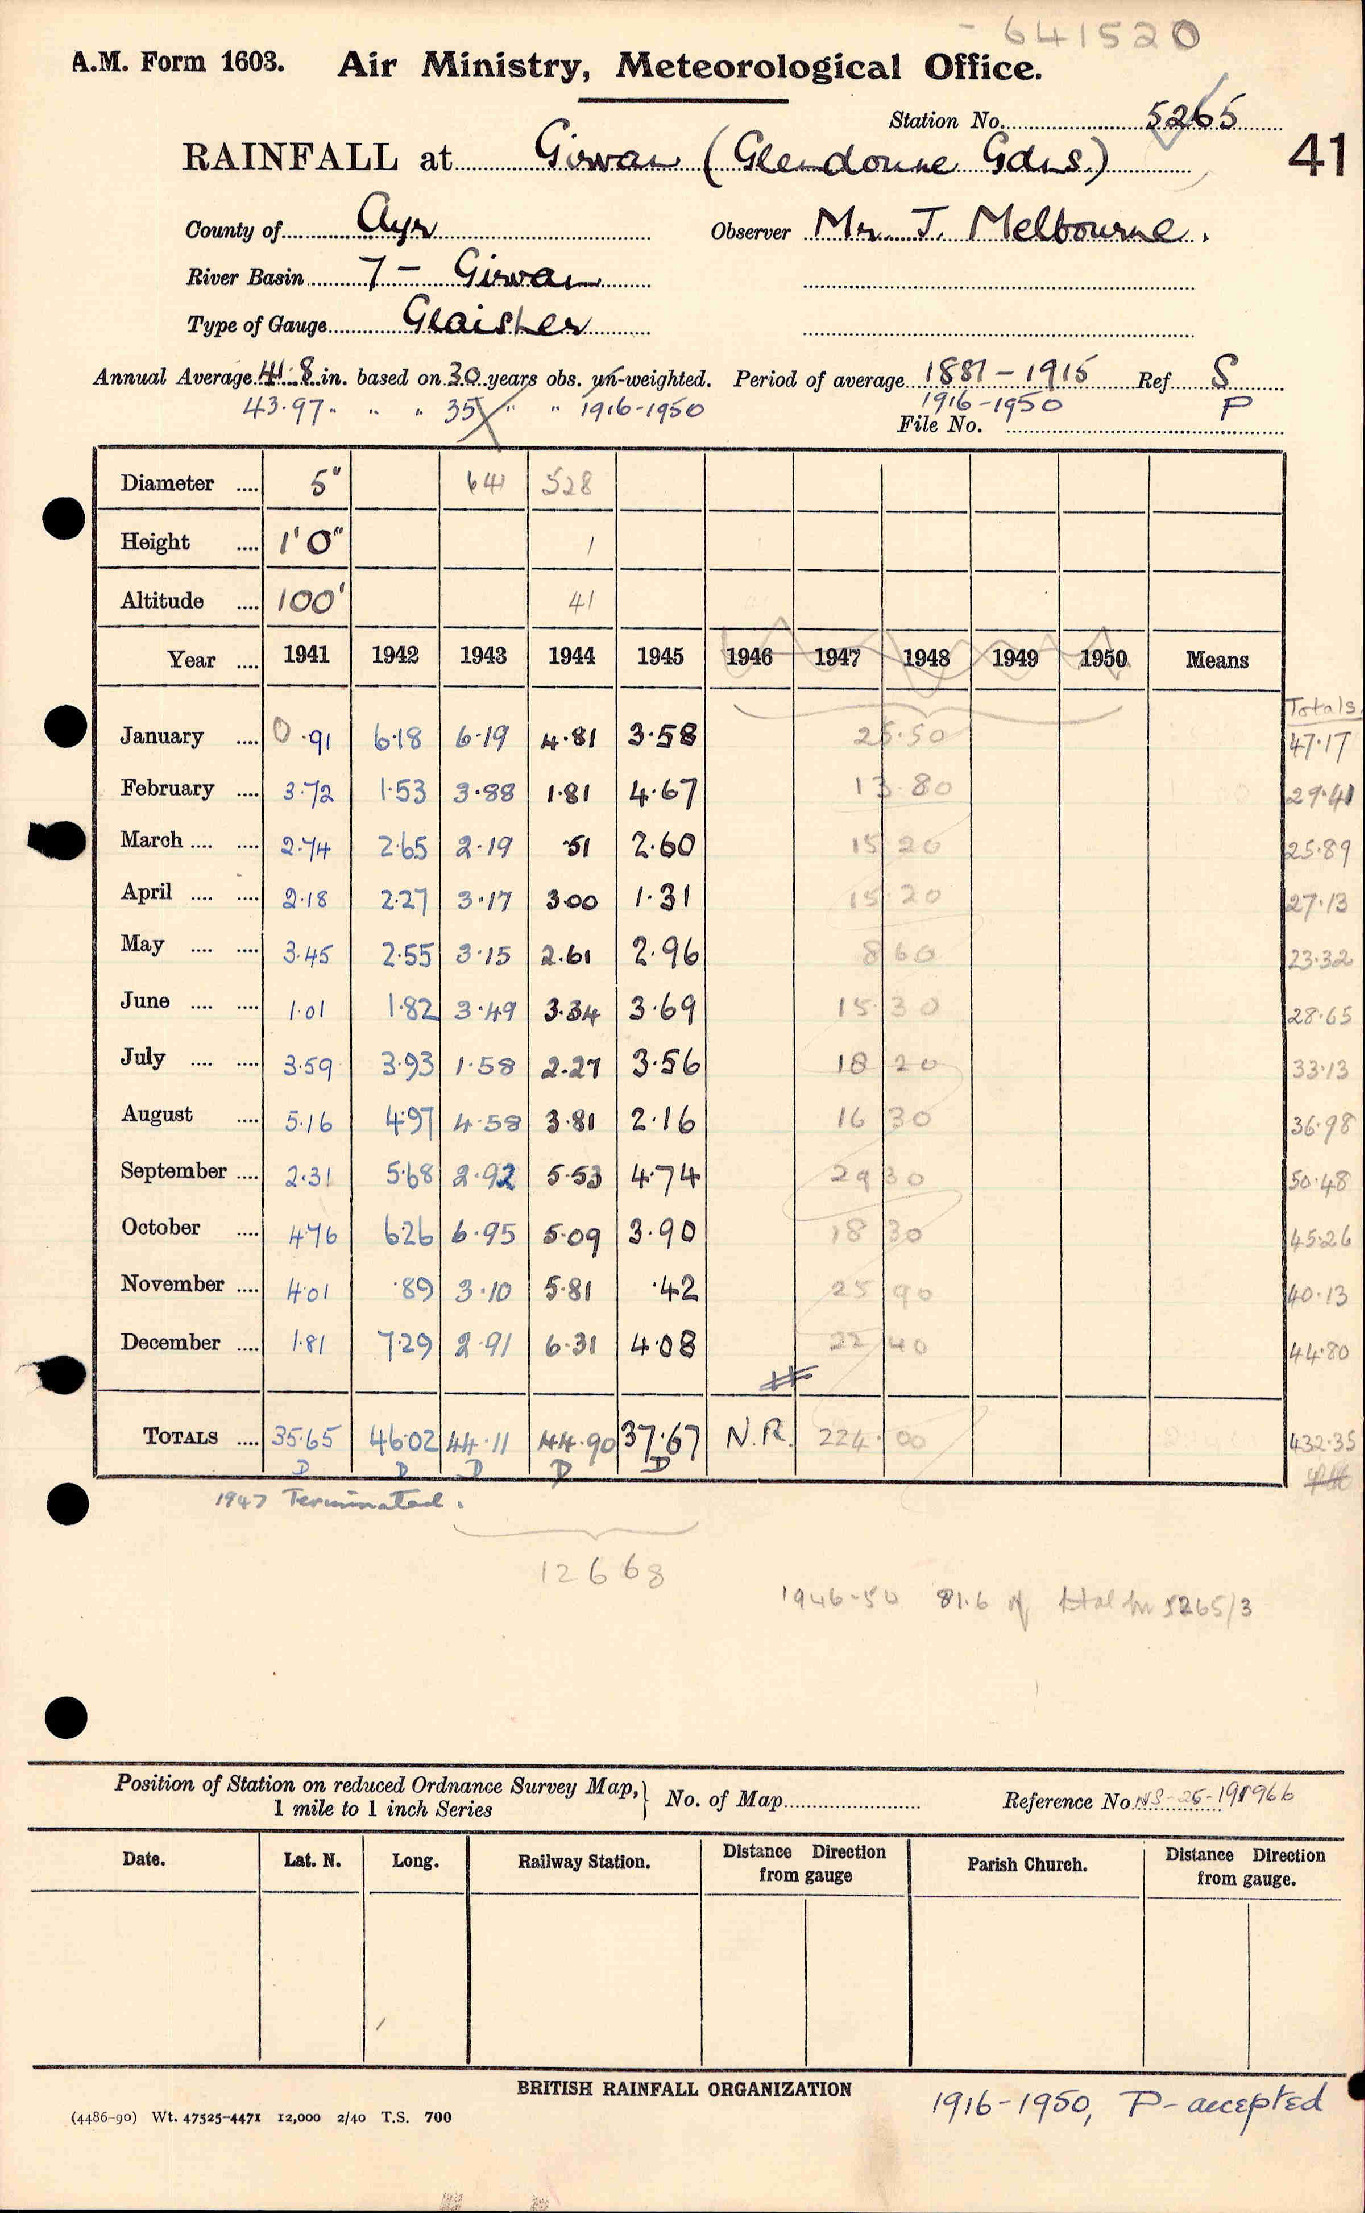 - 641520
A.M. Form 1603. Air Ministry, Meteorological Office.
Station No. 5265
41
RAINFALL at Girvan (Glendoune Gdns.)
County of Ayr Observer Mr. J. Melbourne.
River Basin 7 - Girvan
Type of Gauge Glaisher
Annual Average 41.8 in. based on 30 years obs. un-weighted. Period of average 1881-1915 Ref S
43.97 " " " 35 " " 1916-1950 1916-1950 P
File No.
Diameter .... 5" 641 528
Height .... 1'0" 1
Altitude .... 100' 41
Year .... 1941 1942 1943 1944 1945 1946 1947 1948 1949 1950 Means
Totals
January .... 0.91 6.18 6.19 4.81 3.58 25.50 47.17
February .... 3.72 1.53 3.88 1.81 4.67 13.80 29.41
March .... .... 2.74 2.65 2.19 .51 2.60 15 20 25.89
April .... .... 2.18 2.27 3.17 3.00 1.31 15.20 27.13
May .... .... 3.45 2.55 3.15 2.61 2.96 8 60 23.32
June .... .... 1.01 1.82 3.49 3.34 3.69 15.30 28.65
July .... .... 3.59 3.93 1.58 2.27 3.56 18 20 33.13
August .... 5.16 4.97 4.58 3.81 2.16 16 30 36.98
September .... 2.31 5.68 2.92 5.53 4.74 29 30 50.48
October .... 4.76 6.26 6.95 5.09 3.90 18 30 45.26
November .... 4.01 .89 3.10 5.81 .42 25 90 40.13
December .... 1.81 7.29 2.91 6.31 4.08 22 40 44.80
TOTALS .... 35.65 46.02 44.11 44.90 37.67 N.R. 224.00 432.35
D D D D D
1947 Terminated.
12668
1946-50 81.6 of total for 5265/3
Position of Station on reduced Ordnance Survey Map, 1 mile to 1 inch Series } No. of Map Reference No. NS-26-191966
Date. Lat. N. Long. Railway Station. Distance Direction from gauge Parish Church. Distance Direction from gauge.
BRITISH RAINFALL ORGANIZATION
1916-1950, P-accepted
(4486-90) Wt. 47525-4471 12,000 2/40 T.S. 700